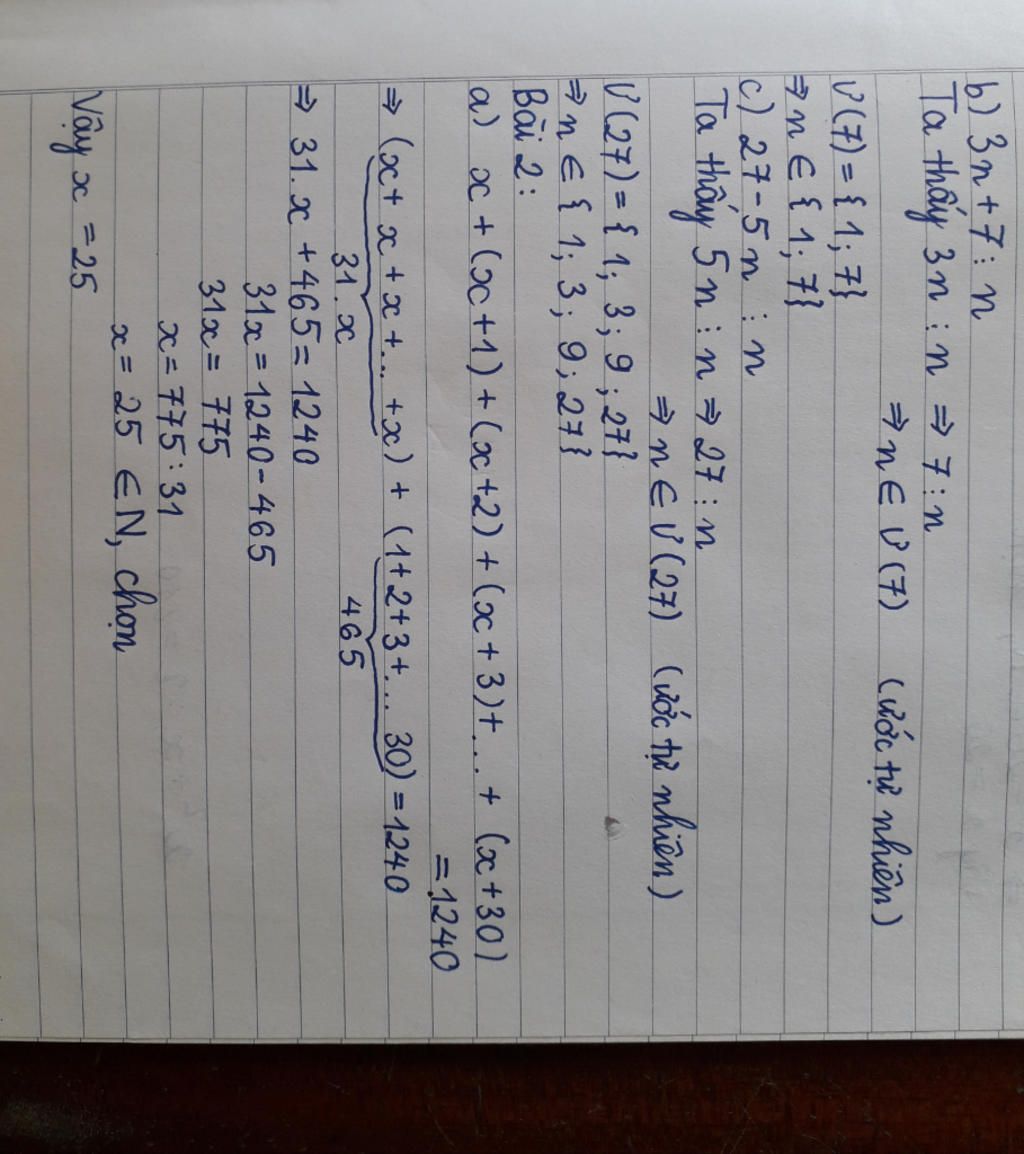 b) 3n + 7 ⋮ n
Ta thấy 3n ⋮ n ⇒ 7 ⋮ n
⇒ n ∈ Ư(7) (ước tự nhiên)
Ư(7) = { 1; 7}
⇒ n ∈ { 1; 7}
c) 27 - 5n ⋮ n
Ta thấy 5n ⋮ n ⇒ 27 ⋮ n
⇒ n ∈ Ư(27) (ước tự nhiên)
Ư(27) = { 1; 3; 9; 27}
⇒ n ∈ { 1; 3; 9; 27}
Bài 2:
a) x + (x+1) + (x+2) + (x+3) + ... + (x+30)
= 1240
⇒ (x + x + x + ... + x) + (1+2+3+... 30) = 1240
31.x 465
⇒ 31.x + 465 = 1240
31x = 1240 - 465
31x = 775
x = 775 : 31
x = 25 ∈ N, chọn
Vậy x = 25